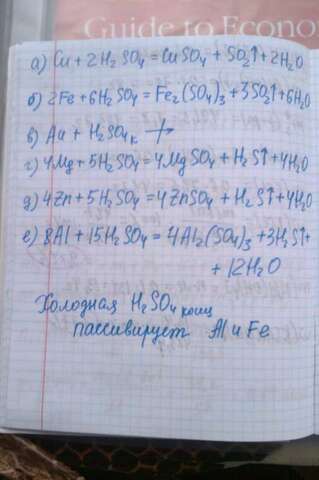 Guide to Econo
а) Cu + 2H₂SO₄ = CuSO₄ + SO₂↑ + 2H₂O
б) 2Fe + 6H₂SO₄ = Fe₂(SO₄)₃ + 3SO₂↑ + 6H₂O
в) Au + H₂SO₄к ↛
г) 4Mg + 5H₂SO₄ = 4MgSO₄ + H₂S↑ + 4H₂O
д) 4Zn + 5H₂SO₄ = 4ZnSO₄ + H₂S↑ + 4H₂O
е) 8Al + 15H₂SO₄ = 4Al₂(SO₄)₃ + 3H₂S↑ +
+ 12H₂O
Холодная H₂SO₄ конц
пассивирует Al и Fe